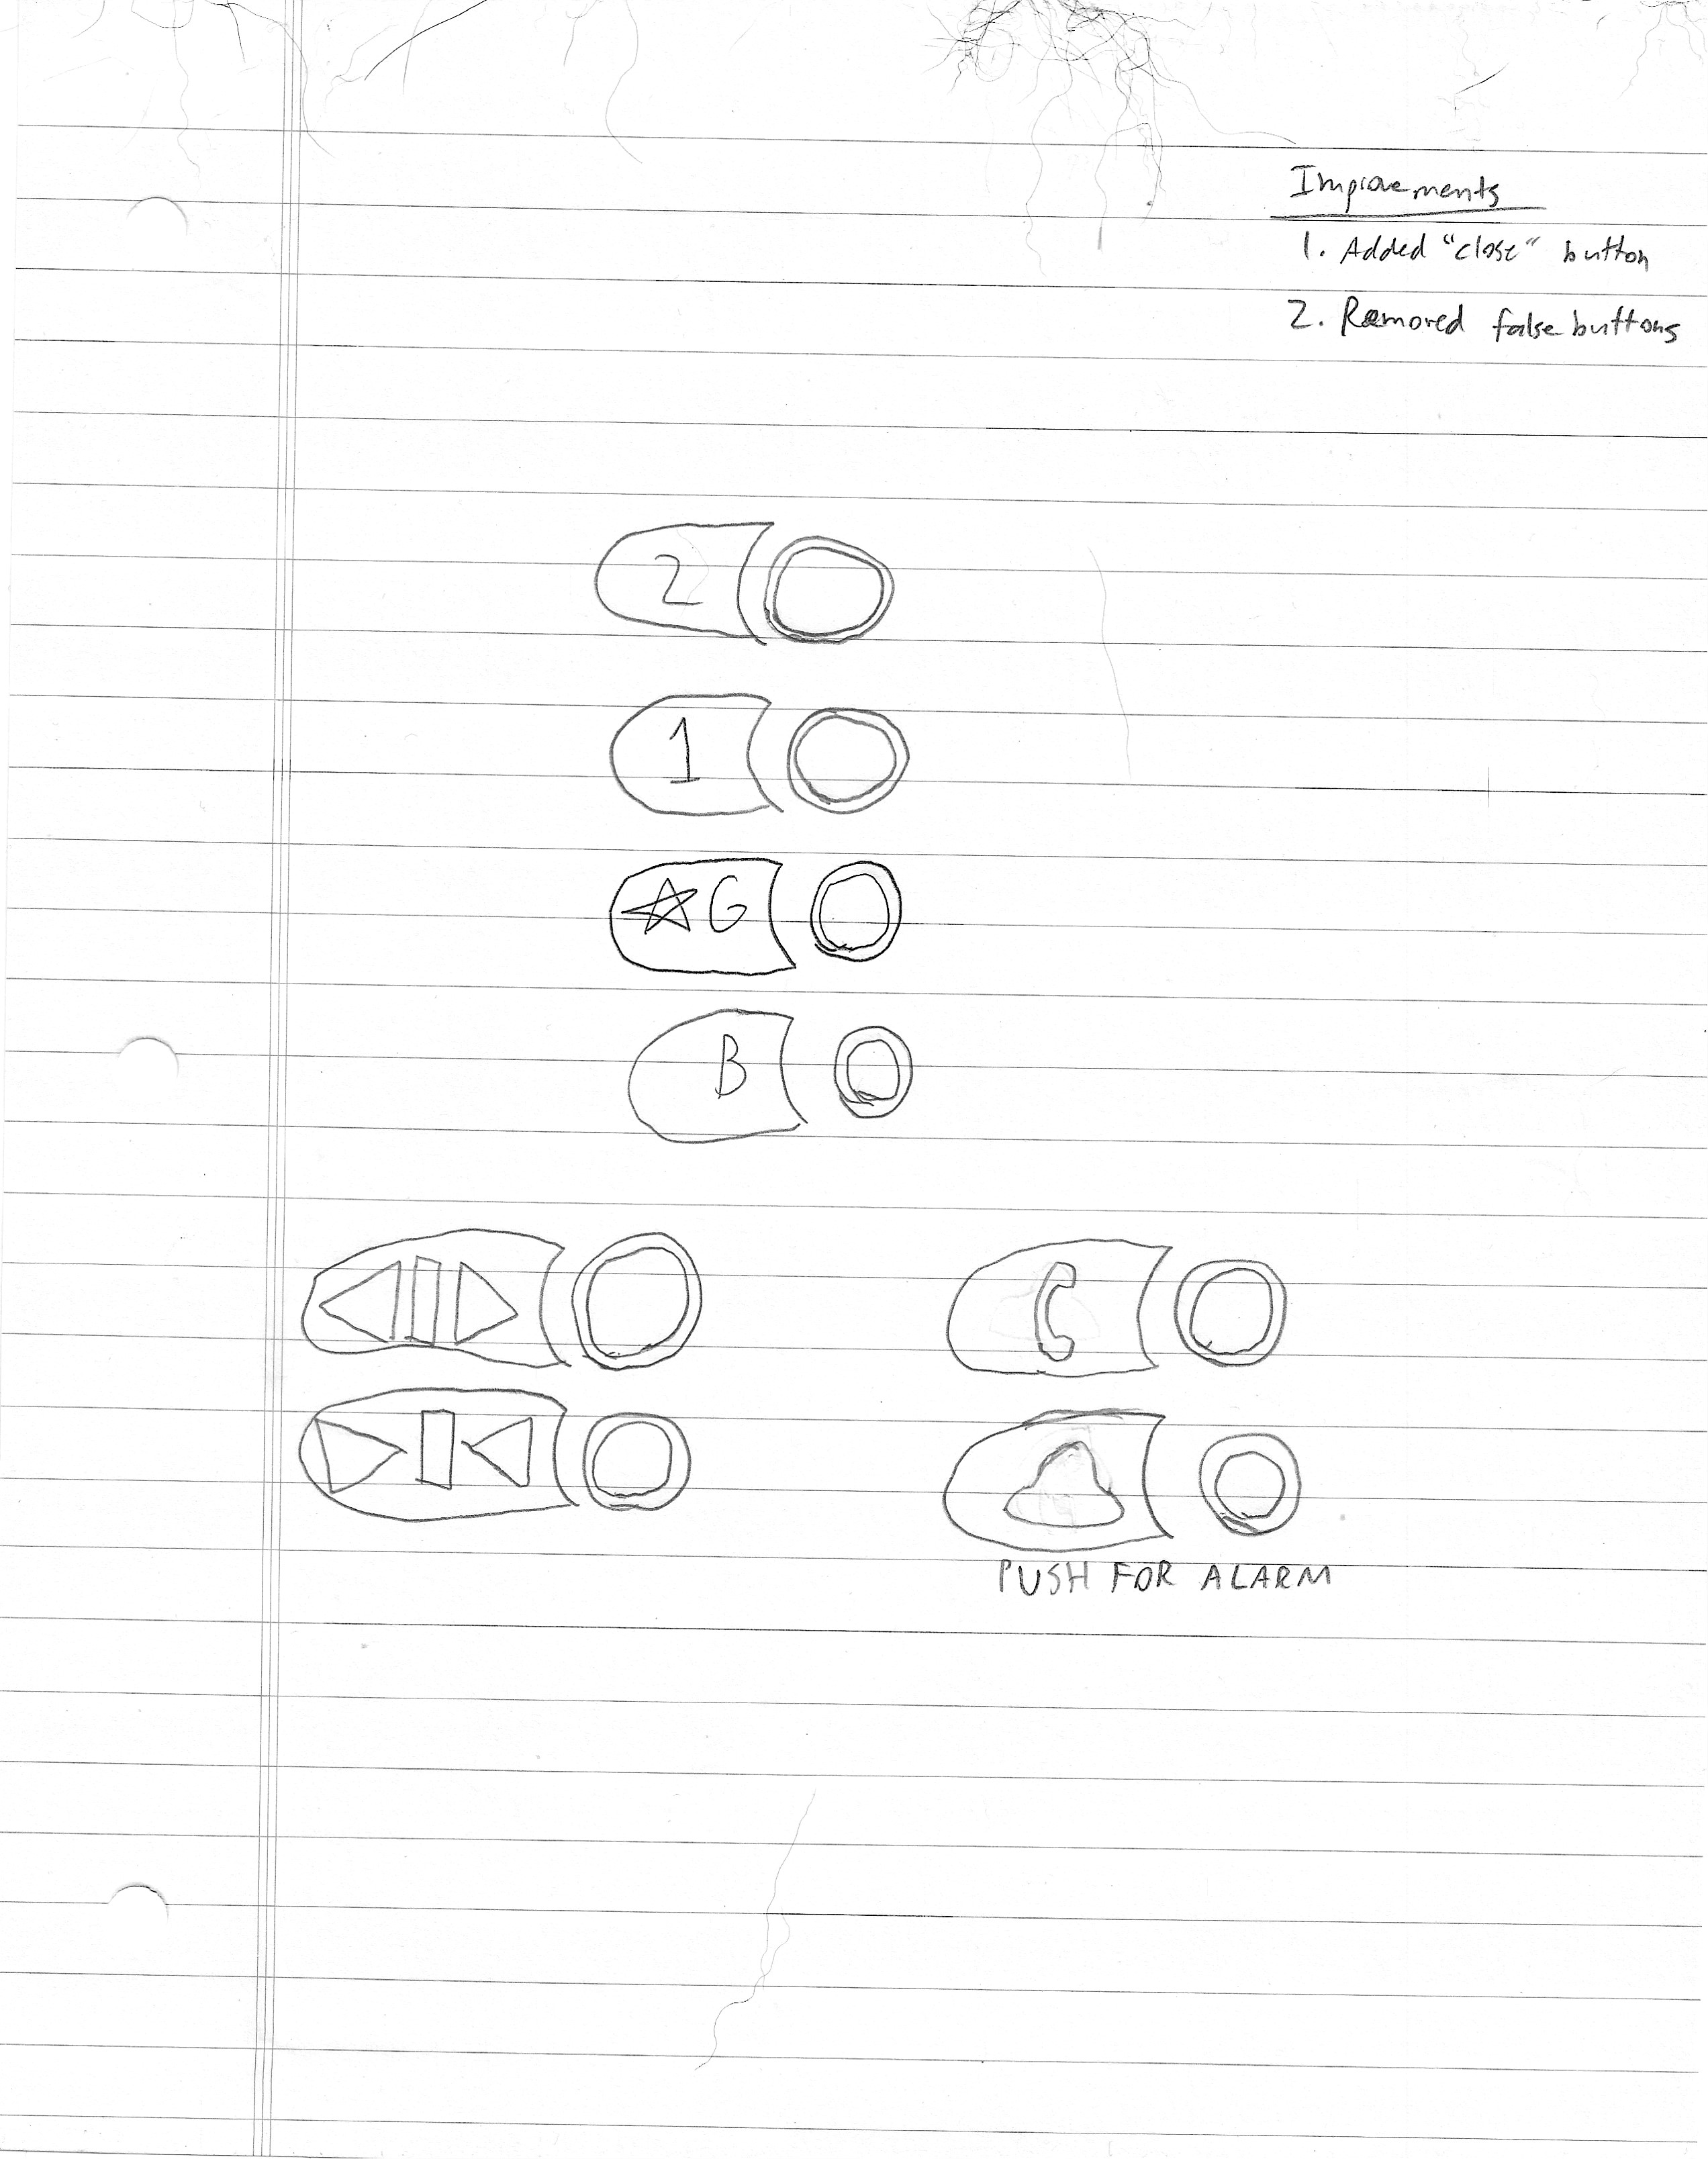 Improvements
1. Added "close" button
2. Removed false buttons
2
1
☆G
B
PUSH FOR ALARM